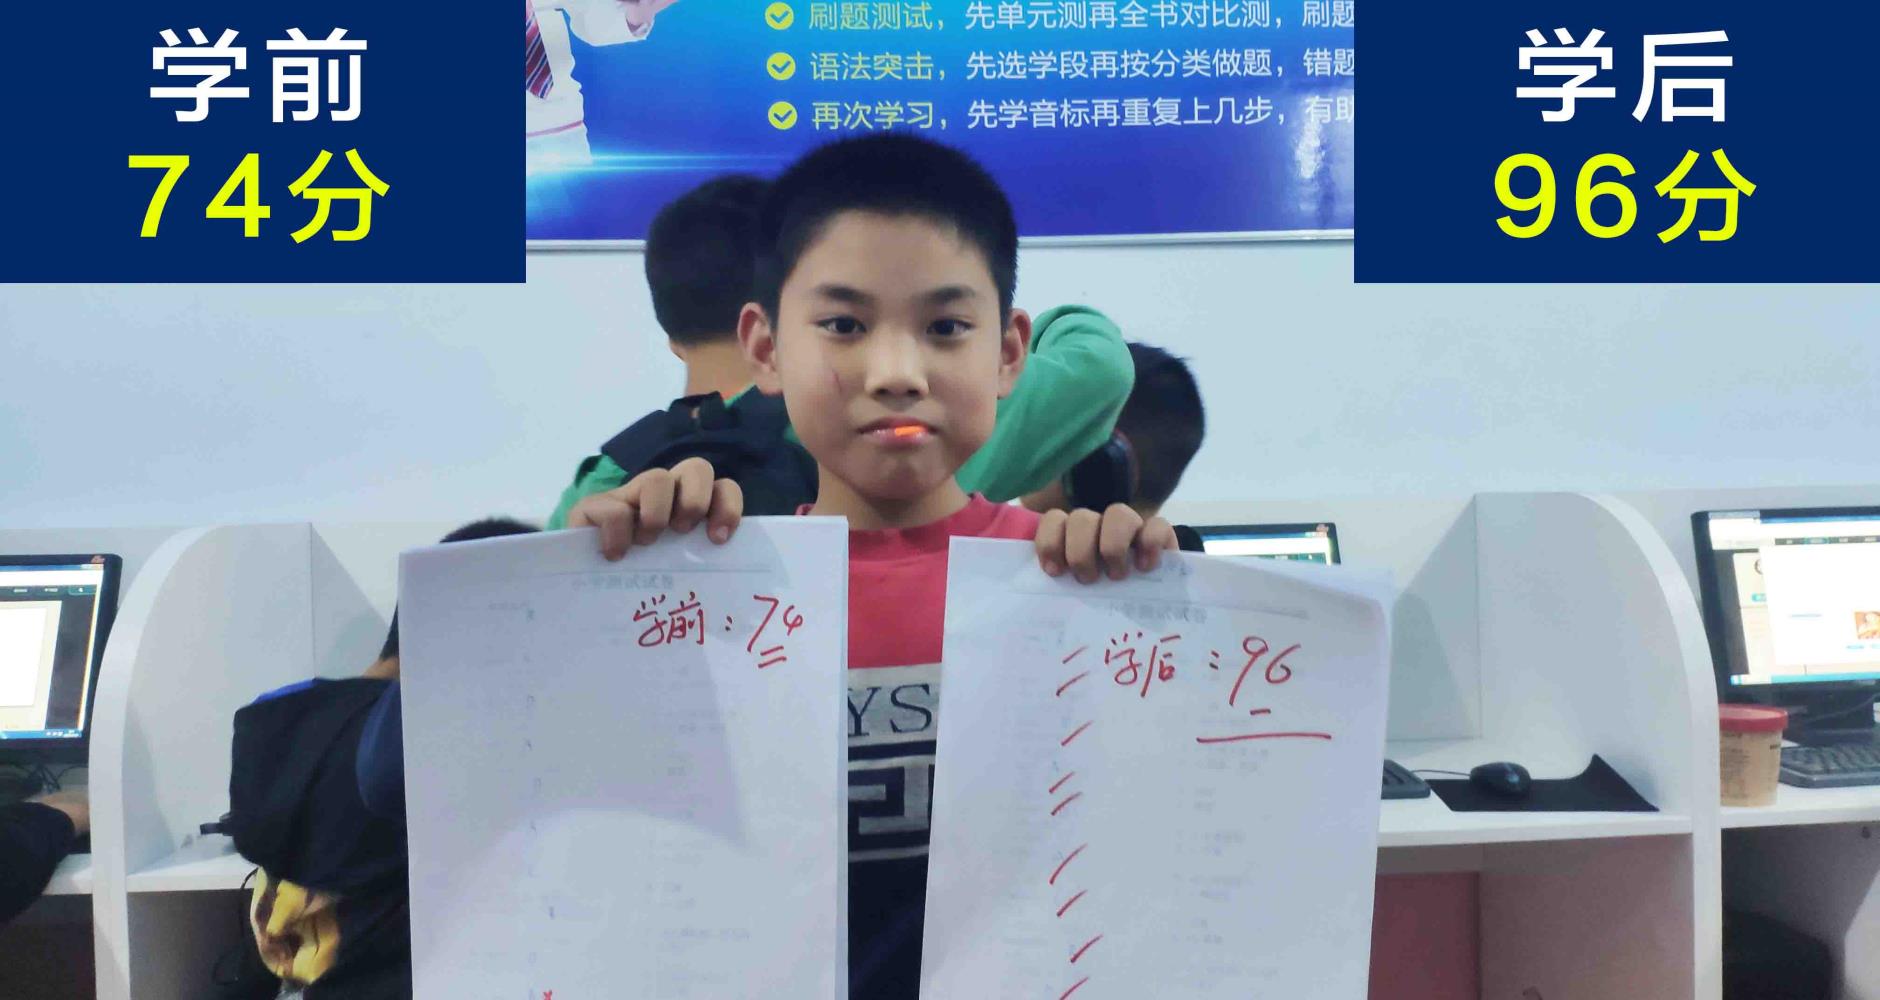 学前
74分
学后
96分
刷题测试，先单元测再全书对比测，刷题
语法突击，先选学段再按分类做题，错题
再次学习，先学音标再重复上几步，有助
学前：74
学后：96
YS